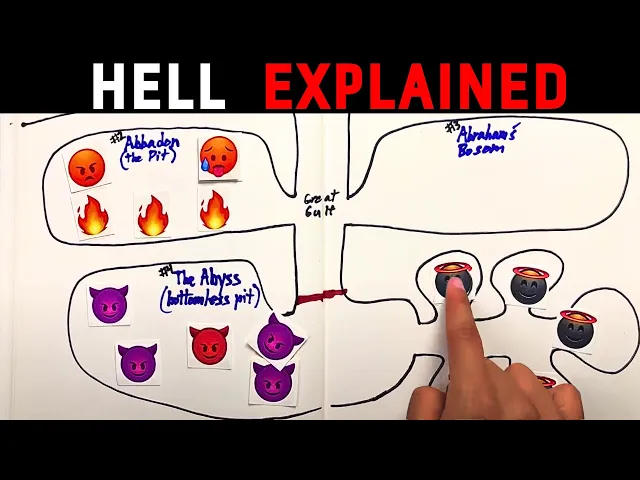 HELL EXPLAINED
#2 Abbadon
(the Pit)
#3 Abraham's
Bosom
Great
Gulf
#4 The Abyss
(bottomless pit)